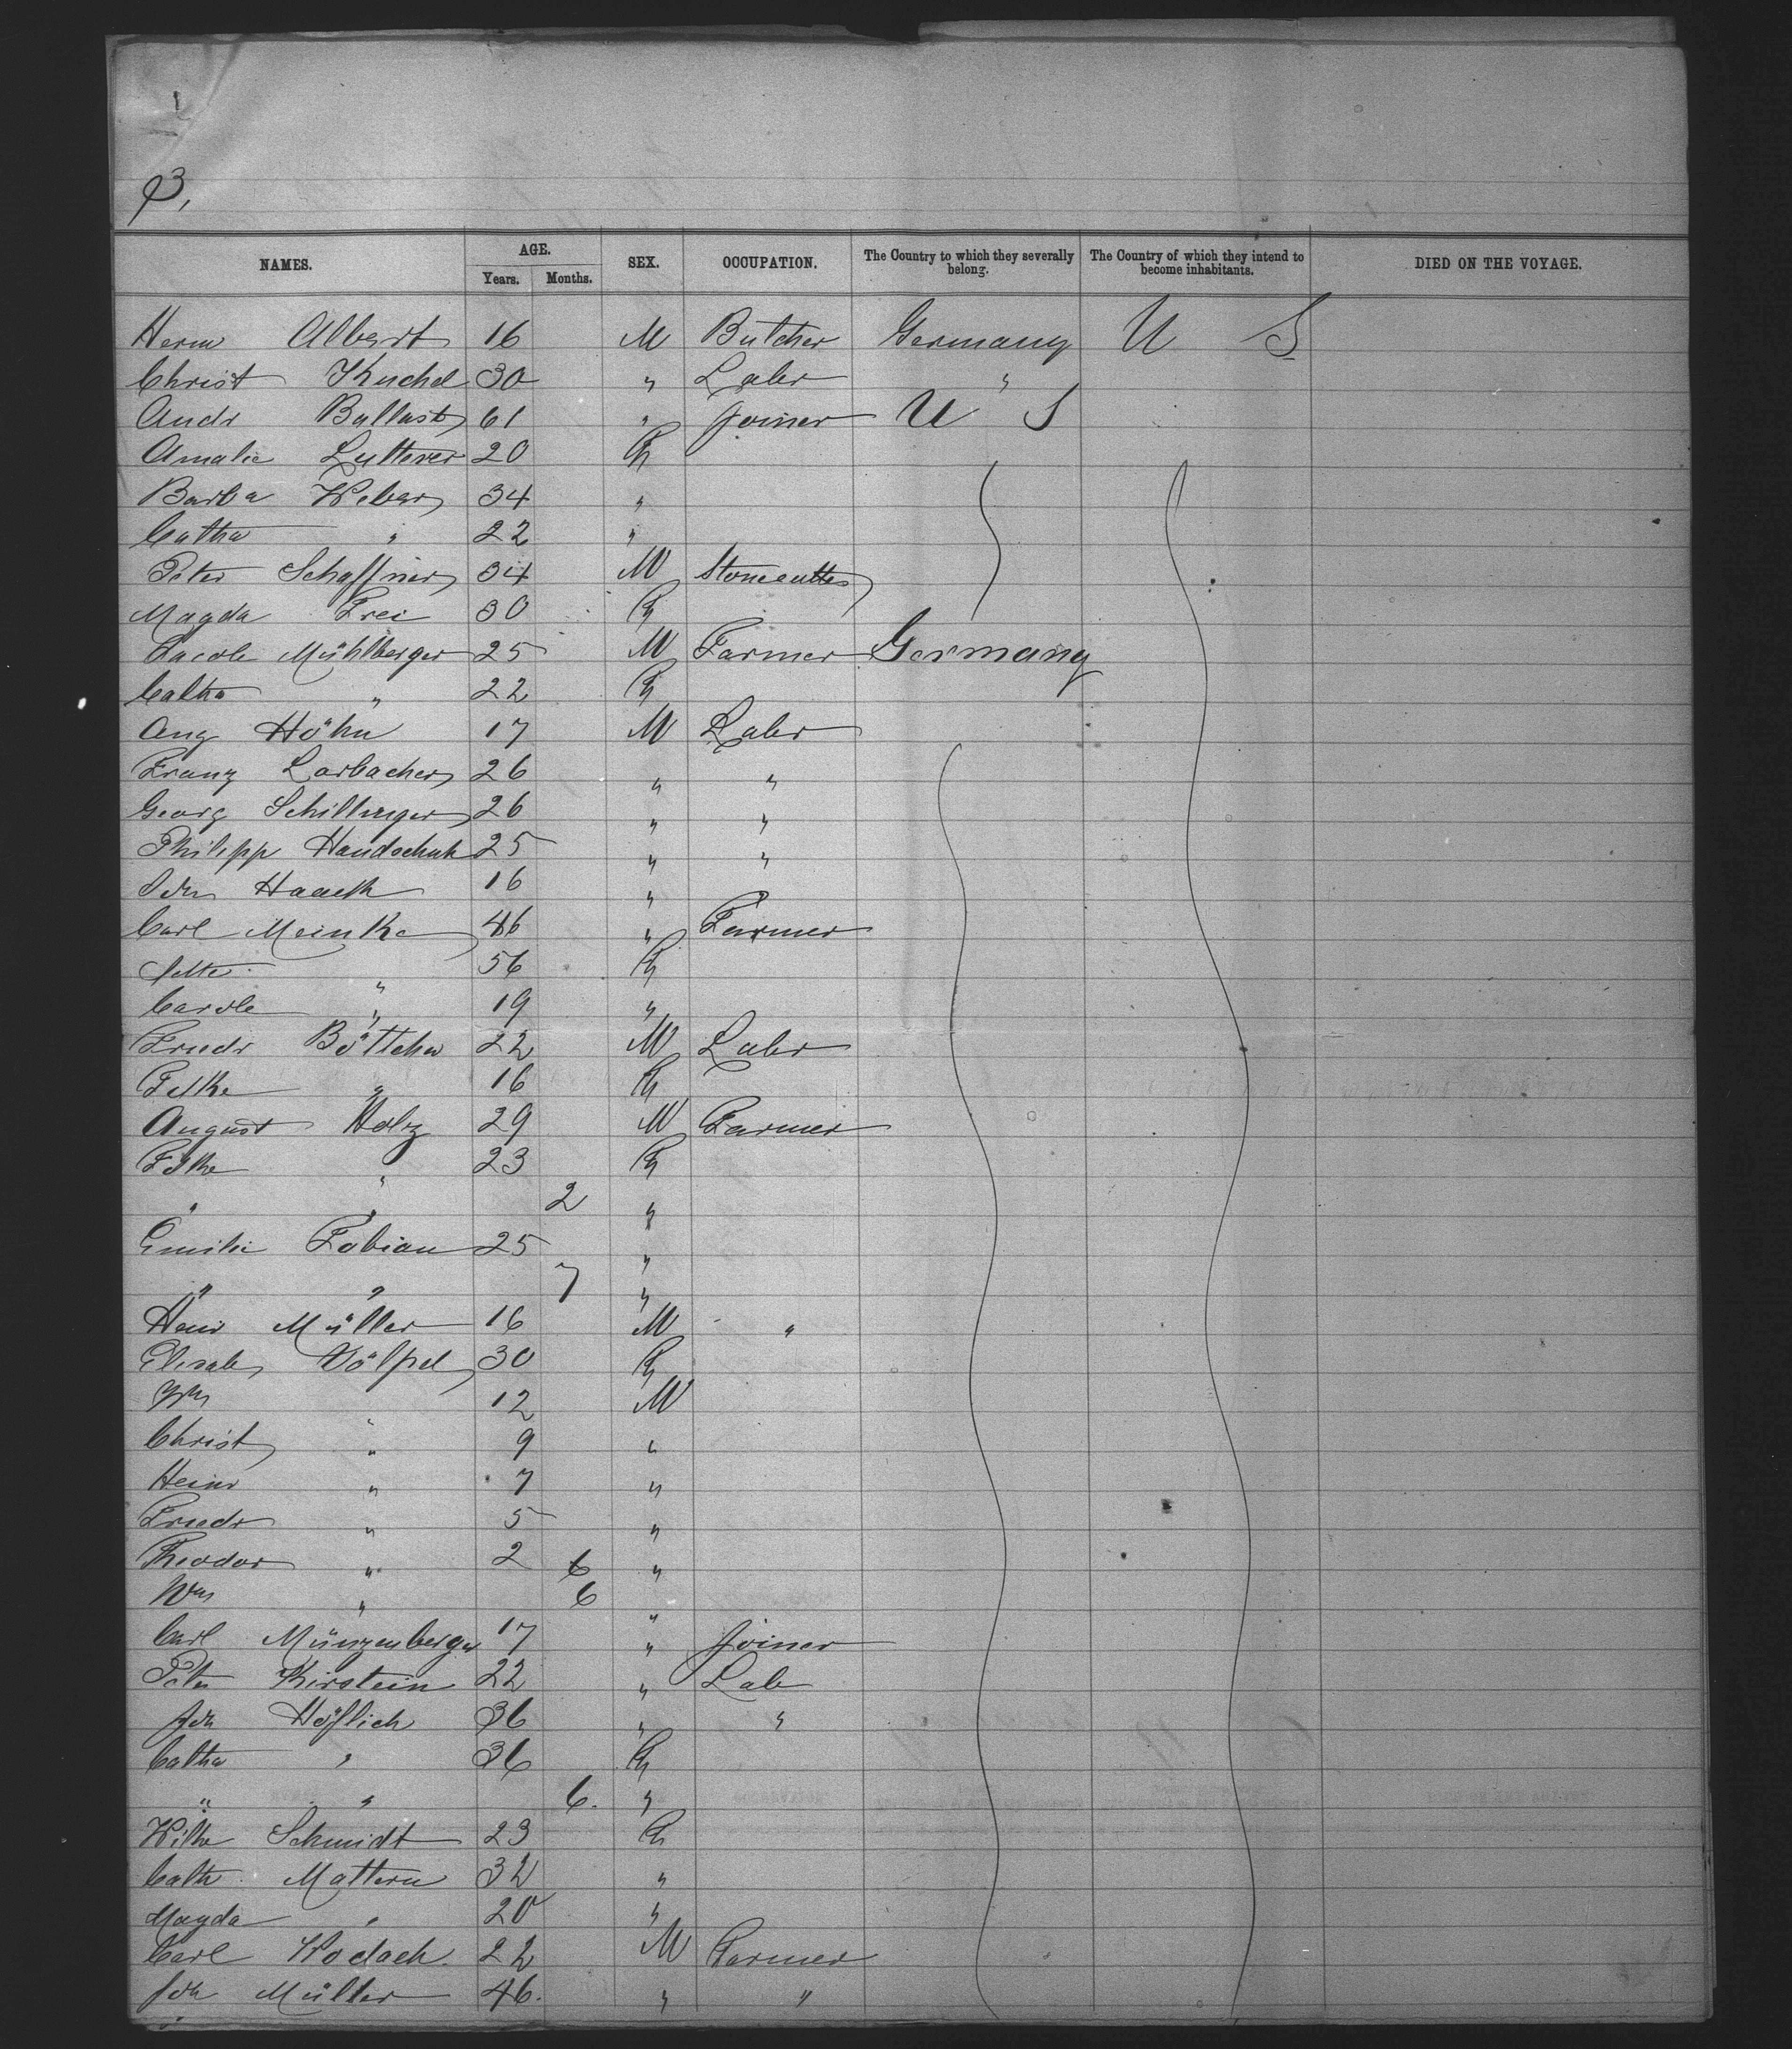 1
3,
NAMES. AGE. SEX. OCCUPATION. The Country to which they severally belong. The Country of which they intend to become inhabitants. DIED ON THE VOYAGE.
Years. Months.
Herm Albert 16 M Butcher Germany U S
Christ Kuchel 30 " Labr "
Andr Ballast 61 " Joiner U S
Amalie Lutterer 20 F
Barba Weber 34 "
Catha " 22 "
Peter Schaffner 34 M Stonecutter
Magda Frei 30 F
Jacob Mühlberger 25 M Farmer Germany
Catha " 22 F
Aug Höhn 17 M Labr
Franz Lorbacher 26 " "
Georg Schillinger 26 " "
Philipp Handschuh 25 " "
Joh Haack 16 "
Carl Meinke 46 " Farmer
Jette " 56 F
Carole " 19 "
Friedr Böttcher 22 M Labr
" 16 F
August Holz 29 M Farmer
" 23 F
" " 2 "
Emilie Fabian 25 "
" " 7 "
Heinr Müller 16 M "
Elisab Völpel 30 F
Wm " 12 M
Christ " 9 "
Heinr " 7 "
Friedr " 5 "
Theodor " 2 6 "
Wm " 6 "
Carl Münzenberger 17 " Joiner
Peter Kirstein 22 " Lab
Joh Höflich 36 " "
Catha " 36 F
" " 6. "
Wilhe Schmidt 23 F
Cath. Mattern 32 "
Magda " 20 "
Carl Wodach. 22 M Farmer
Joh Müller 46. " "